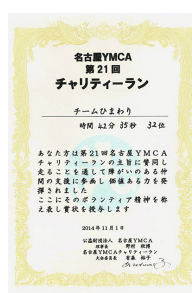 名古屋YMCA
第21回
チャリティーラン
チームひまわり
時間 42分 35秒 32位
あなた方は第21回名古屋YMCA
チャリティーランの主旨に賛同し
走ることを通して障がいのある仲
間の支援に参画し価値ある力を発
揮されました
ここにそのボランティア精神を称
え表し賞状を授与します
2014年11月1日
公益財団法人 名古屋YMCA
名古屋YMCAチャリティーラン
大会委員長